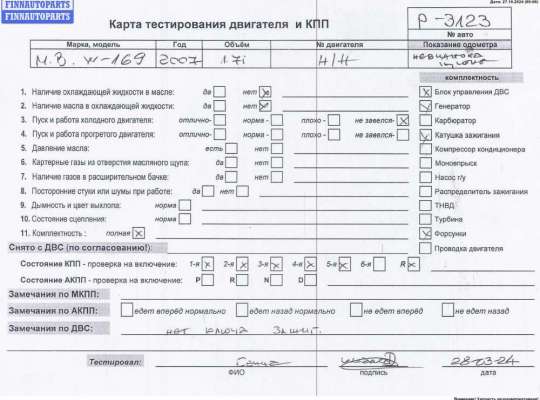 FINNAUTOPARTS
FINNAUTOPARTS
Карта тестирования двигателя и КПП
P-3123
№ авто
Марка, модель Год Объём № двигателя Показание одометра
M.B. W-169 2007 1.7i Н/Н
комплектность
1. Наличие охлаждающей жидкости в масле: да нет
2. Наличие масла в охлаждающей жидкости: да нет
3. Пуск и работа холодного двигателя: отлично- норма - плохо - не завелся-
4. Пуск и работа прогретого двигателя: отлично- норма - плохо - не завелся-
5. Давление масла: есть нет
6. Картерные газы из отверстия масляного щупа: да нет
7. Наличие газов в расширительном бачке: да нет
8. Посторонние стуки или шумы при работе: да нет
9. Дымность и цвет выхлопа: норма
10. Состояние сцепления: норма
11. Комплектность : полная
Блок управления ДВС
Генератор
Карбюратор
Катушка зажигания
Компрессор кондиционера
Моновпрыск
Насос г/у
Распределитель зажигания
ТНВД
Турбина
Форсунки
Проводка двигателя
Снято с ДВС (по согласованию!):
Состояние КПП - проверка на включение: 1-я 2-я 3-я 4-я 5-я 6-я R
Состояние АКПП - проверка на включение: P R N D
Замечания по МКПП:
Замечания по АКПП: едет вперёд нормально едет назад нормально не едет вперёд не едет назад
Замечания по ДВС: нет ключа зажиг.
Тестировал: 28-03-24
ФИО подпись дата